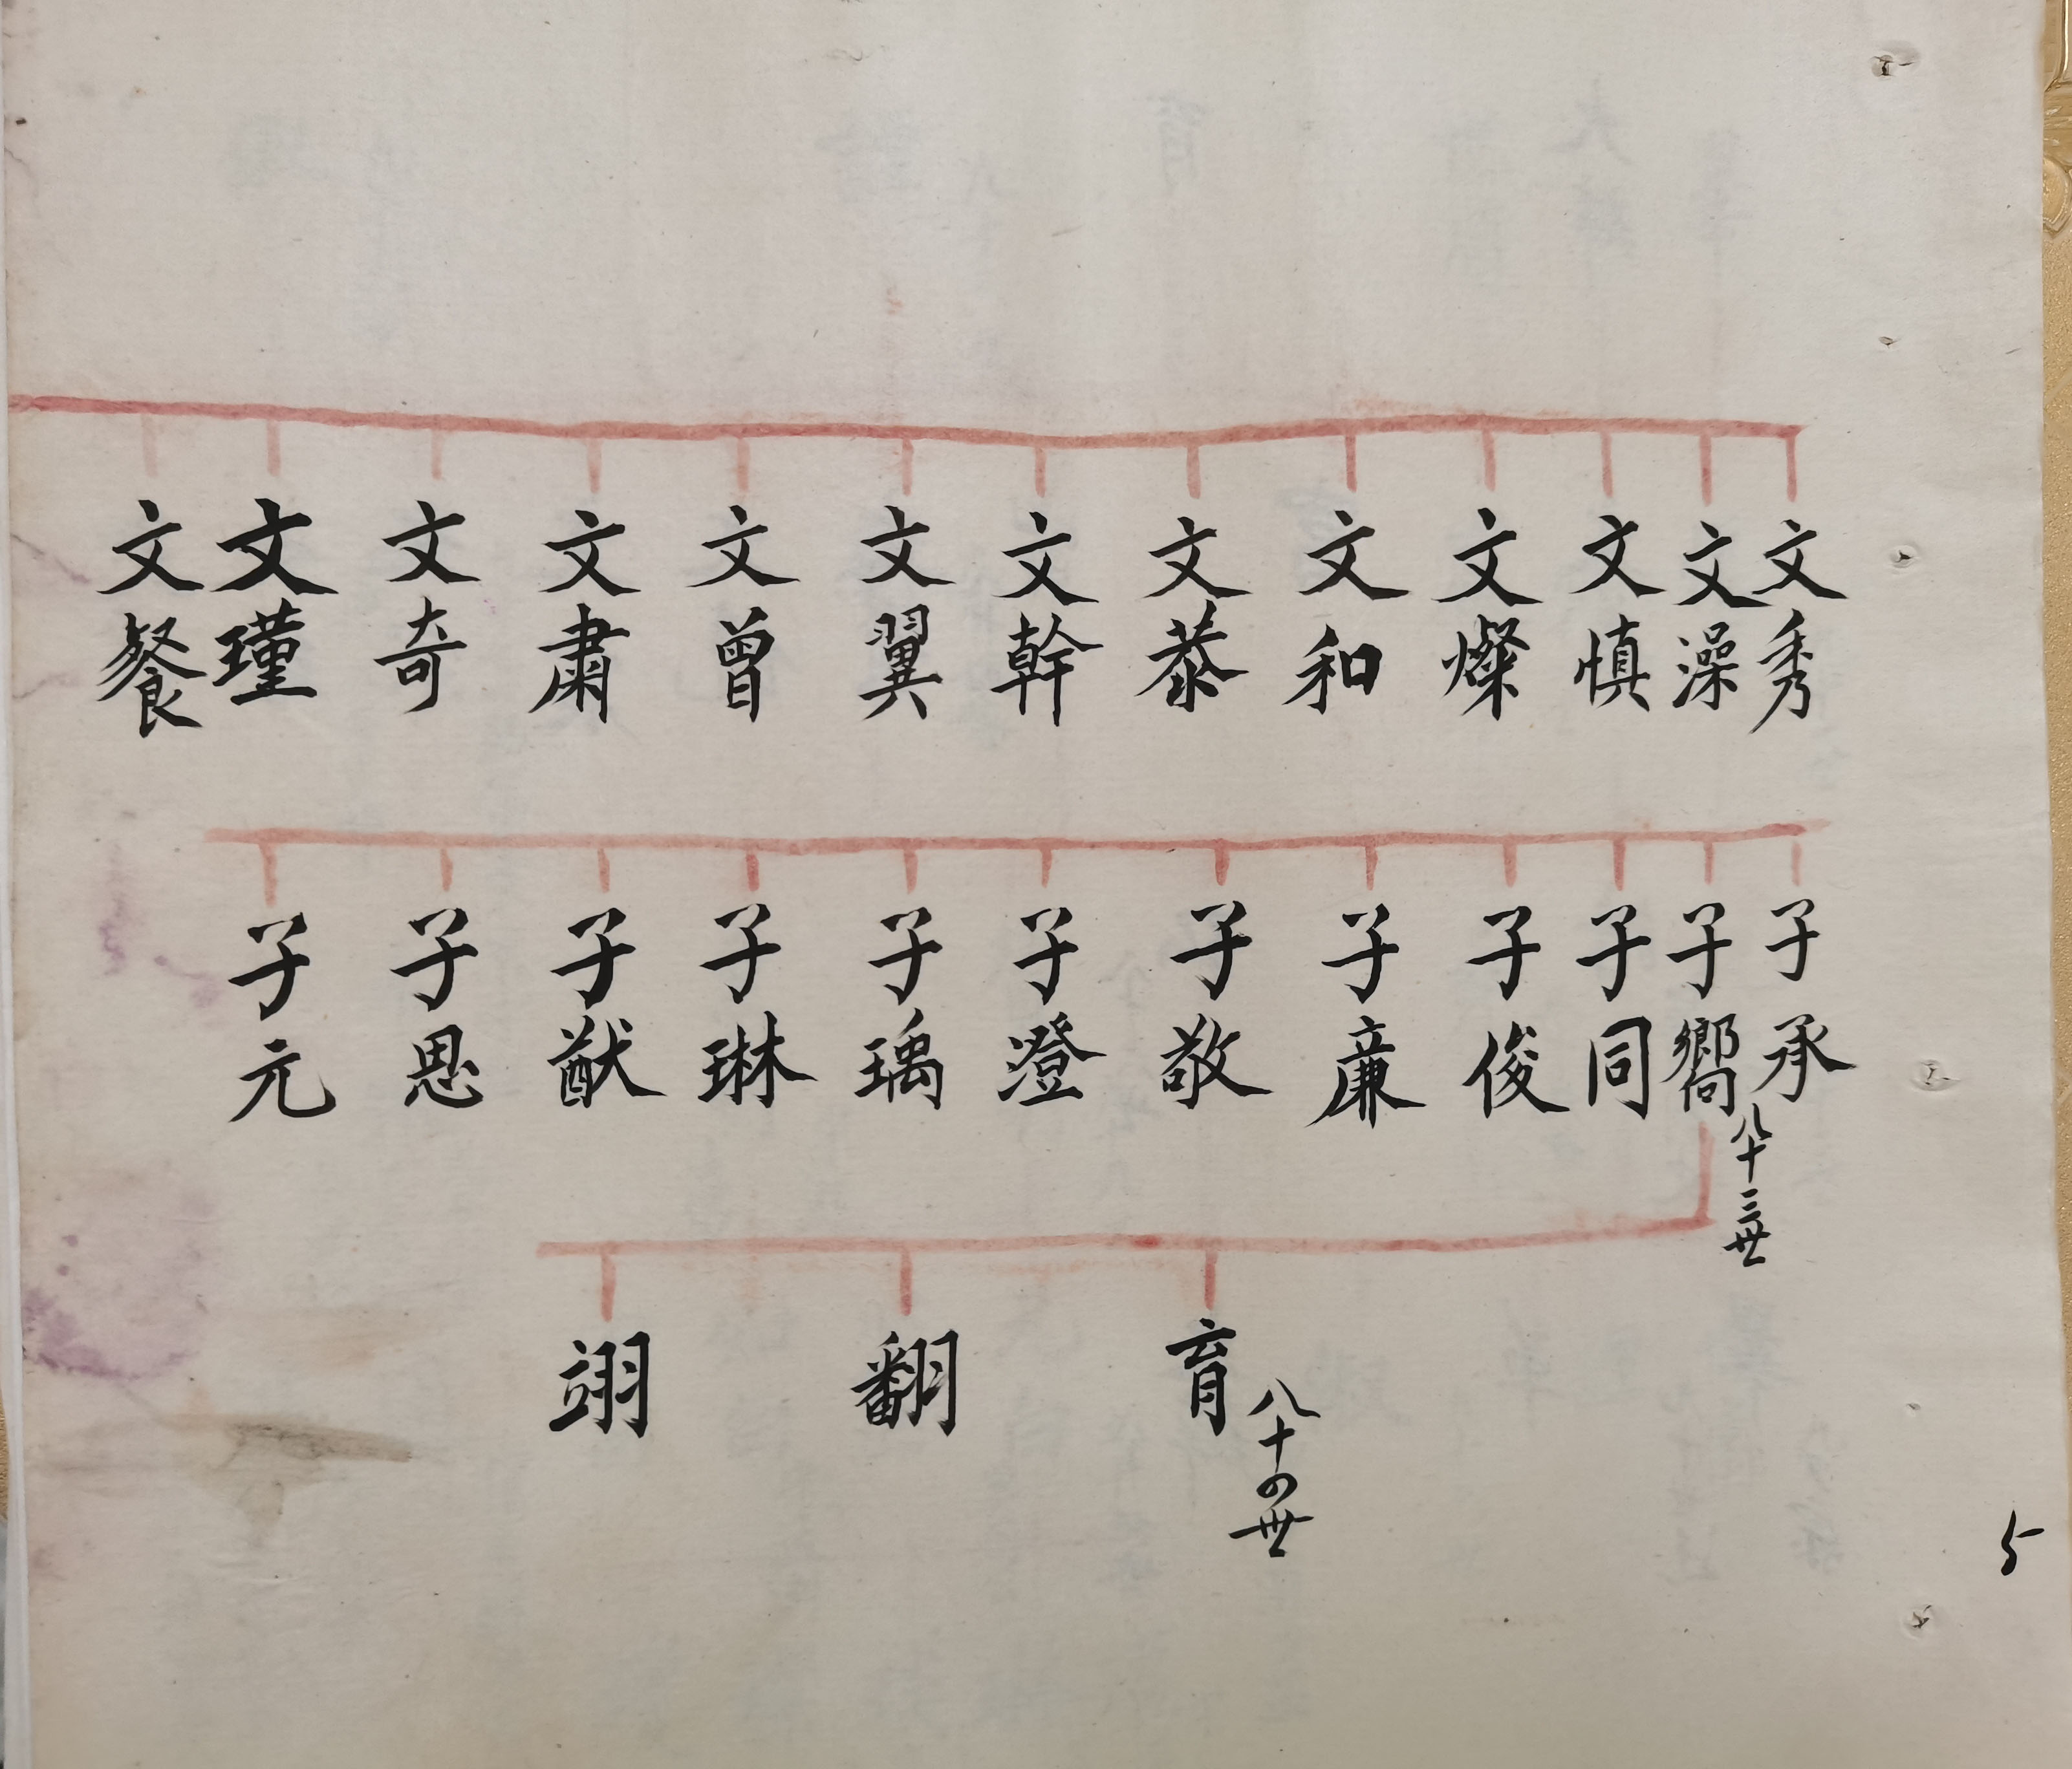 文秀
文澡
文慎
文燦
文和
文恭
文幹
文翼
文曾
文肅
文奇
文瑾
文餐
子承
子嚮
八十三世
子同
子俊
子廉
子敬
子澄
子瑀
子琳
子猷
子思
子元
育
八十四世
翻
翊
5